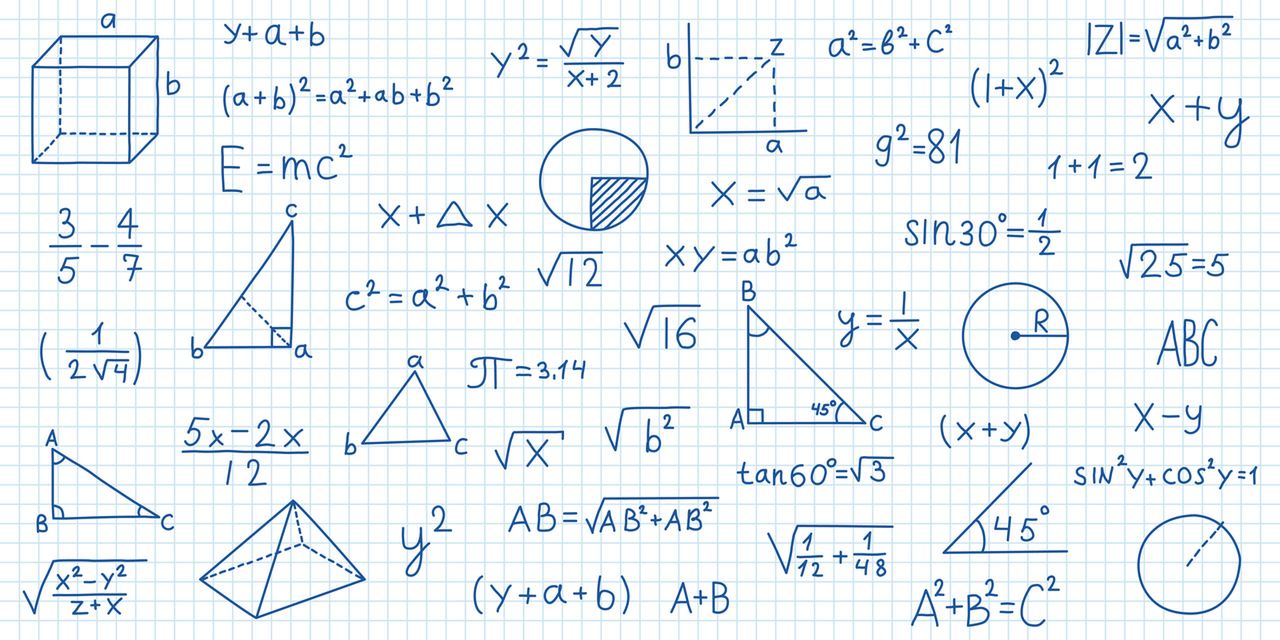 a
b
y+a+b
(a+b)²=a²+ab+b²
E=mc²
y²=√y/(x+2)
b
z
a
a²=b²+c²
|Z|=√a²+b²
(1+x)²
x+y
g²=81
1+1=2
3/5-4/7
c
b
a
x+△x
x=√a
sin30°=1/2
√25=5
c²=a²+b²
√12
xy=ab²
(1/2√4)
√16
B
A
45°
C
y=1/x
R
ABC
π=3.14
a
b
c
5x-2x/12
√x
√b²
(x+y)
x-y
A
B
C
tan60°=√3
SIN²y+COS²y=1
y²
AB=√AB²+AB²
√1/12+1/48
45°
√x²-y²/z+x
(y+a+b)
A+B
A²+B²=C²